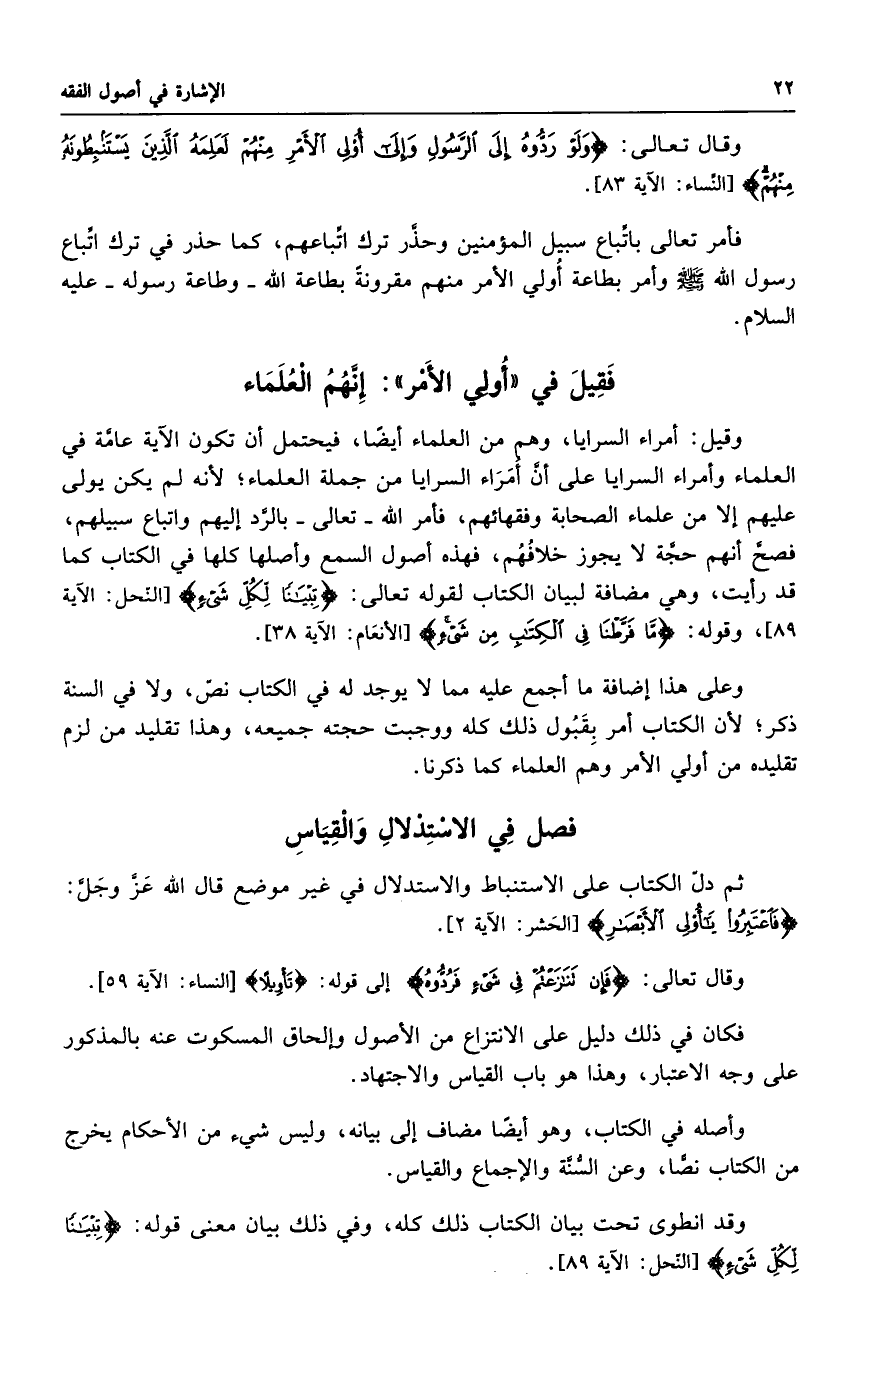 ٢٢ الإشارة في أصول الفقه
وقال تعالى: ﴿وَلَوْ رَدُّوهُ إِلَى ٱلرَّسُولِ وَإِلَىٰٓ أُو۟لِى ٱلْأَمْرِ مِنْهُمْ لَعَلِمَهُ ٱلَّذِينَ يَسْتَنۢبِطُونَهُۥ
مِنْهُمْ ۗ﴾ [النّساء: الآية ٨٣].
فأمر تعالى باتِّباع سبيل المؤمنين وحذَّر ترك اتِّباعهم، كما حذر في ترك اتِّباع
رسول الله ﷺ وأمر بطاعة أُولي الأمر منهم مقرونةً بطاعة الله ـ وطاعة رسوله ـ عليه
السلام.
فَقِيلَ في «أُولِي الأَمْر»: إِنَّهُمُ الْعُلَمَاء
وقيل: أمراء السرايا، وهم من العلماء أيضًا، فيحتمل أن تكون الآية عامَّة في
العلماء وأمراء السرايا على أنَّ أُمَرَاء السرايا من جملة العلماء؛ لأنه لم يكن يولى
عليهم إلا من علماء الصحابة وفقهائهم، فأمر الله ـ تعالى ـ بالرَّد إليهم واتباع سبيلهم،
فصحَّ أنهم حجَّة لا يجوز خلافُهُم، فهذه أصول السمع وأصلها كلها في الكتاب كما
قد رأيت، وهي مضافة لبيان الكتاب لقوله تعالى: ﴿تِبْيَـٰنًا لِّكُلِّ شَىْءٍ﴾ [النّحل: الآية
٨٩]، وقوله: ﴿مَّا فَرَّطْنَا فِى ٱلْكِتَـٰبِ مِن شَىْءٍ ۚ﴾ [الأنعَام: الآية ٣٨].
وعلى هذا إضافة ما أجمع عليه مما لا يوجد له في الكتاب نصّ، ولا في السنة
ذكر؛ لأن الكتاب أمر بِقَبُول ذلك كله ووجبت حجته جميعه، وهذا تقليد من لزم
تقليده من أولي الأمر وهم العلماء كما ذكرنا.
فصل فِي الاسْتِدْلالِ وَالْقِيَاسِ
ثم دلّ الكتاب على الاستنباط والاستدلال في غير موضع قال الله عَزَّ وجَلَّ:
﴿فَٱعْتَبِرُوا۟ يَـٰٓأُو۟لِى ٱلْأَبْصَـٰرِ﴾ [الحَشر: الآية ٢].
وقال تعالى: ﴿فَإِن تَنَـٰزَعْتُمْ فِى شَىْءٍ فَرُدُّوهُ﴾ إلى قوله: ﴿تَأْوِيلًا﴾ [النساء: الآية ٥٩].
فكان في ذلك دليل على الانتزاع من الأصول وإلحاق المسكوت عنه بالمذكور
على وجه الاعتبار، وهذا هو باب القياس والاجتهاد.
وأصله في الكتاب، وهو أيضًا مضاف إلى بيانه، وليس شيء من الأحكام يخرج
من الكتاب نصًّا، وعن السُّنَّة والإجماع والقياس.
وقد انطوى تحت بيان الكتاب ذلك كله، وفي ذلك بيان معنى قوله: ﴿تِبْيَـٰنًا
لِّكُلِّ شَىْءٍ﴾ [النّحل: الآية ٨٩].